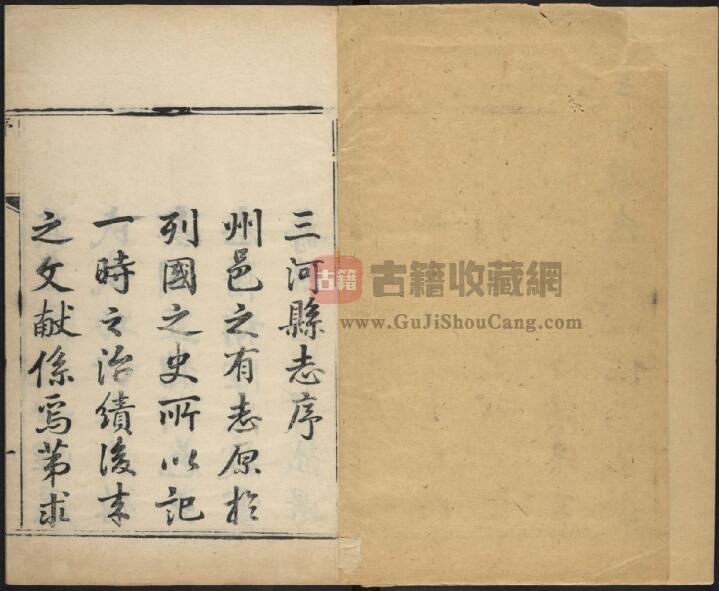 三河縣志序
州邑之有志原於
列國之史所以記
一時之治績後來
之文献係焉第求
古籍
古籍收藏網
www.GuJiShouCang.com